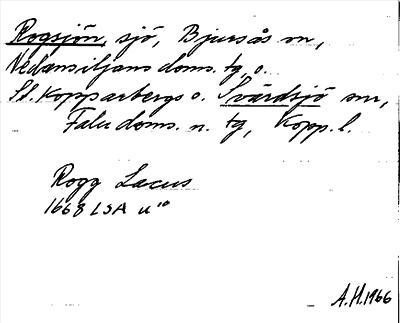 Rogsjön, sjö, Bjursås sn,
Nedansiljans doms. tg, o.
St. Kopparbergs o. Svärdsjö snr,
Falu doms. n. tg, Kopp. l.
Rogg Lacus
1668 LSA u¹⁰
A.H. 1966